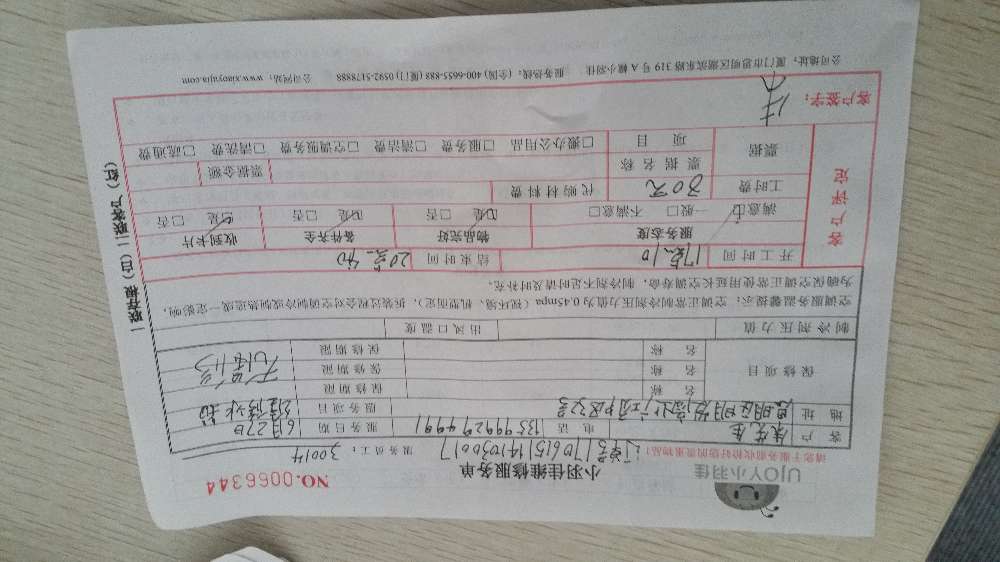 UJOY小羽佳
小羽佳维修服务单
NO.0066344
请您于服务前收拾好您的贵重物品！
订单号170615141030017
服务员工：30014
客户 朱先生 电话 13599929499 服务日期 6月27日
地址 思明区 服务项目 维修水龙
保修项目 名称 保修期限
名称 保修期限
名称 保修期限
制冷剂压力值 出风口温度
空调服务温馨提示：空调正常制冷剂压力值为0.45mpa（视环境、机型而定），拆装过程会对空调制冷或制热造成一定影响，
为确保空调正常使用延长空调寿命，制冷剂不足时请及时补充。
客户评定
开工时间 17点10 结束时间 20点40
服务态度 物品完好 备件齐全 收到卡片
满意☑ 一般□ 不满意□ ☑是 □否 ☑是 □否 ☑是 □否
工时费 30元 代购材料费
票据 票据名称 票据金额
项目 □搬办公用品 □服务费 □清洁费 □空调服务费 □清洗费 □疏通费
客户签字：
公司地址：厦门市思明区湖滨东路319号A幢小羽佳 服务热线：(全国) 400-6655-885 (厦门) 0592-5178888 公司网站：www.xiaoyujia.com
一联存根（白）二联客户（红）